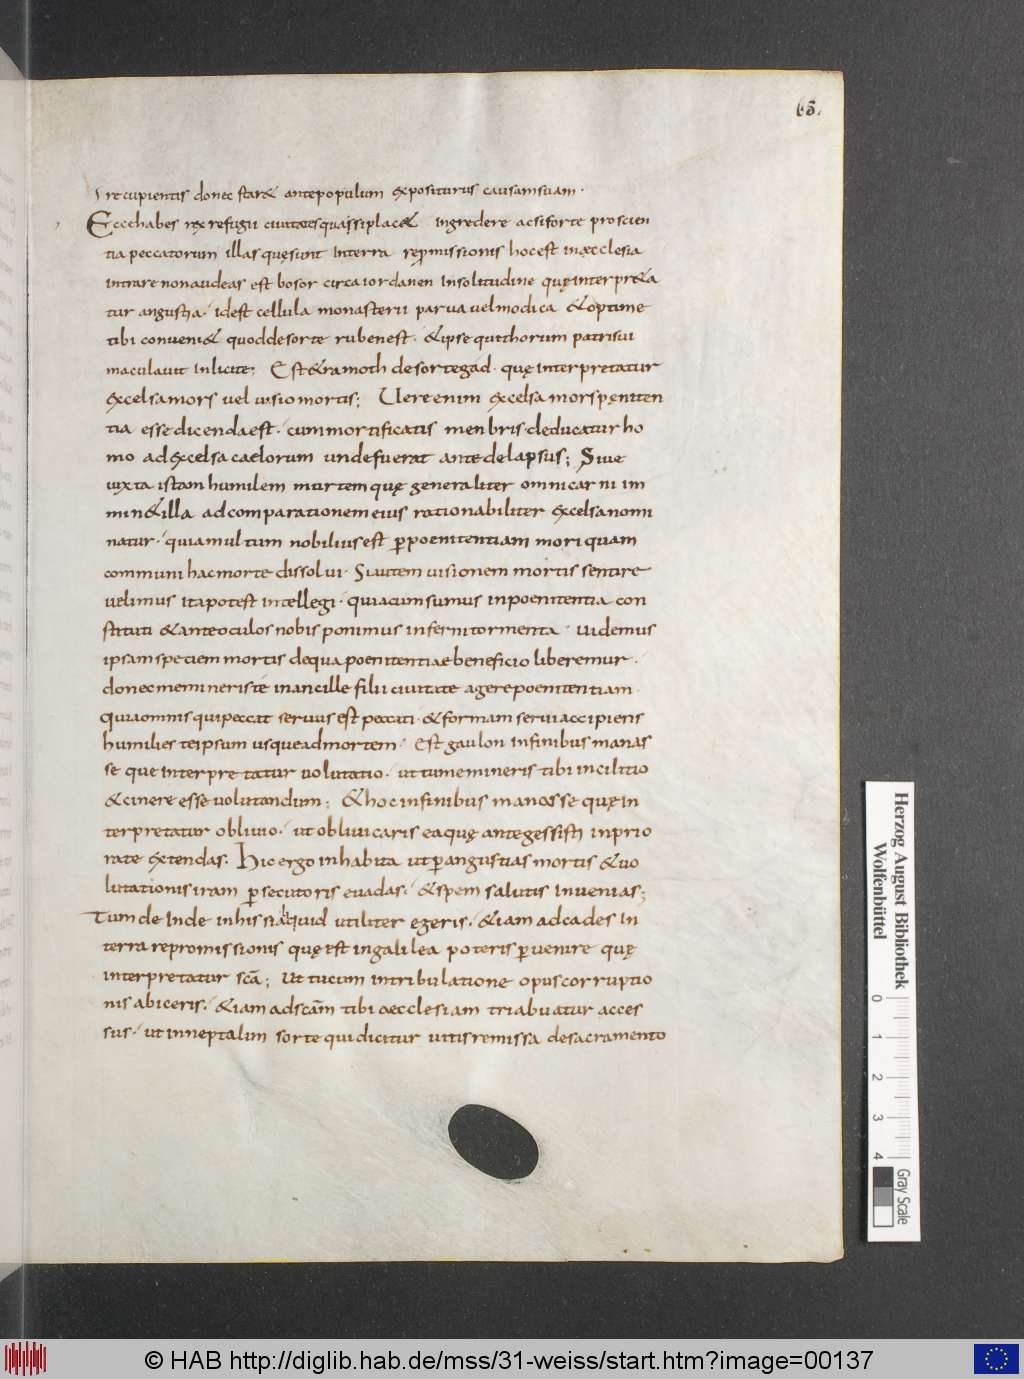 65.
recupientis donec star& antepopulum expositurus causamsuam ·
Eccehabes rex refugii ciuitates quas si plac& ingredere ac si forte proscien
tia peccatorum illas quę sunt interra repromissionis hoc est in ęcclesia
intrare non audeas est bosor circa iordanen insolitudine quę interpr&a
tur angustia · id est cellula monasterii parua uel modica &optime
tibi conueni& quod de sorte ruben est · &ipse qui thorum patris sui
maculauit inlicite; Est &ramoth de sorte gad · quę interpretatur
excelsa mors uel uisio mortis; Uere enim excelsa mors pęniten
tia esse dicenda est · cum mortificatis menbris deducatur ho
mo ad excelsa caelorum unde fuerat ante delapsus; Siue
iuxta istam humilem mortem quę generaliter omni carni im
min& illa ad comparationem eius rationabiliter excelsa nomi
natur · quia multum nobilius est p poenitentiam mori quam
communi hac morte dissolui · Si autem uisionem mortis sentire
uelimus ita potest intellegi · quia cum sumus in poenitentia con
stituti &ante oculos nobis ponimus inferni tormenta · uidemus
ipsam speciem mortis de qua poenitentiae beneficio liberemur ·
donec memineris te in ancille filii ciuitate agere poenitentiam
quia omnis qui peccat seruus est peccati · &formam serui accipiens
humilies te ipsum usque ad mortem · Est gaulon in finibus manas
se que interpretatur uolutatio · ut tu memineris tibi in cilitio
&cinere esse uolutandum; &hoc in finibus manasse quę in
terpretatur obliuio · ut obliuiscaris ea quę ante gessisti in prio
ra te extendas · Hic ergo inhabita ut p angustias mortis &uo
lutationis iram p secutoris euadas · &spem salutis inuenias;
Tum deinde in his si aliquid utiliter egeris · &iam ad cades in
terra repromissionis quę est in galilea poteris p uenire quę
interpretatur scā; Ut tu cum in tribulatione opus corruptio
nis abiceris · &iam ad scām tibi aecclesiam tribuatur acces
sus · ut in neptalim sorte qui dicitur uitis remissa de sacramento
Herzog August Bibliothek
Wolfenbüttel
0 1 2 3 4
Gray Scale
© HAB http://diglib.hab.de/mss/31-weiss/start.htm?image=00137